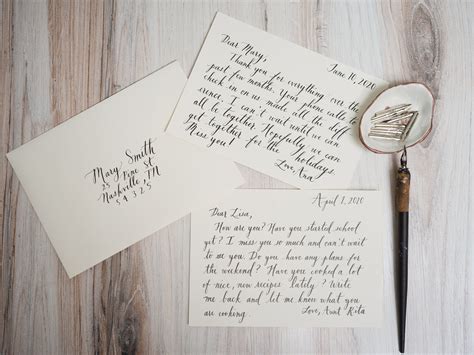 June 10, 2020
Dear Mary,
Thank you for everything over the
past few months. Your phone calls to
check in on us made all the diff
erence. I can't wait until we can
all be together. Hopefully we can
get together for the holidays.
Miss you!
Love, Ana
Mary Smith
25 Pine St
Nashville, TN
54325
April 1, 2020
Dear Lisa,
How are you? Have you started school
yet? I miss you so much and can't wait
to see you. Do you have any plans for
the weekend? Have you cooked a lot
of nice, new recipes lately? Write
me back and let me know what you
are cooking.
Love, Aunt Rita